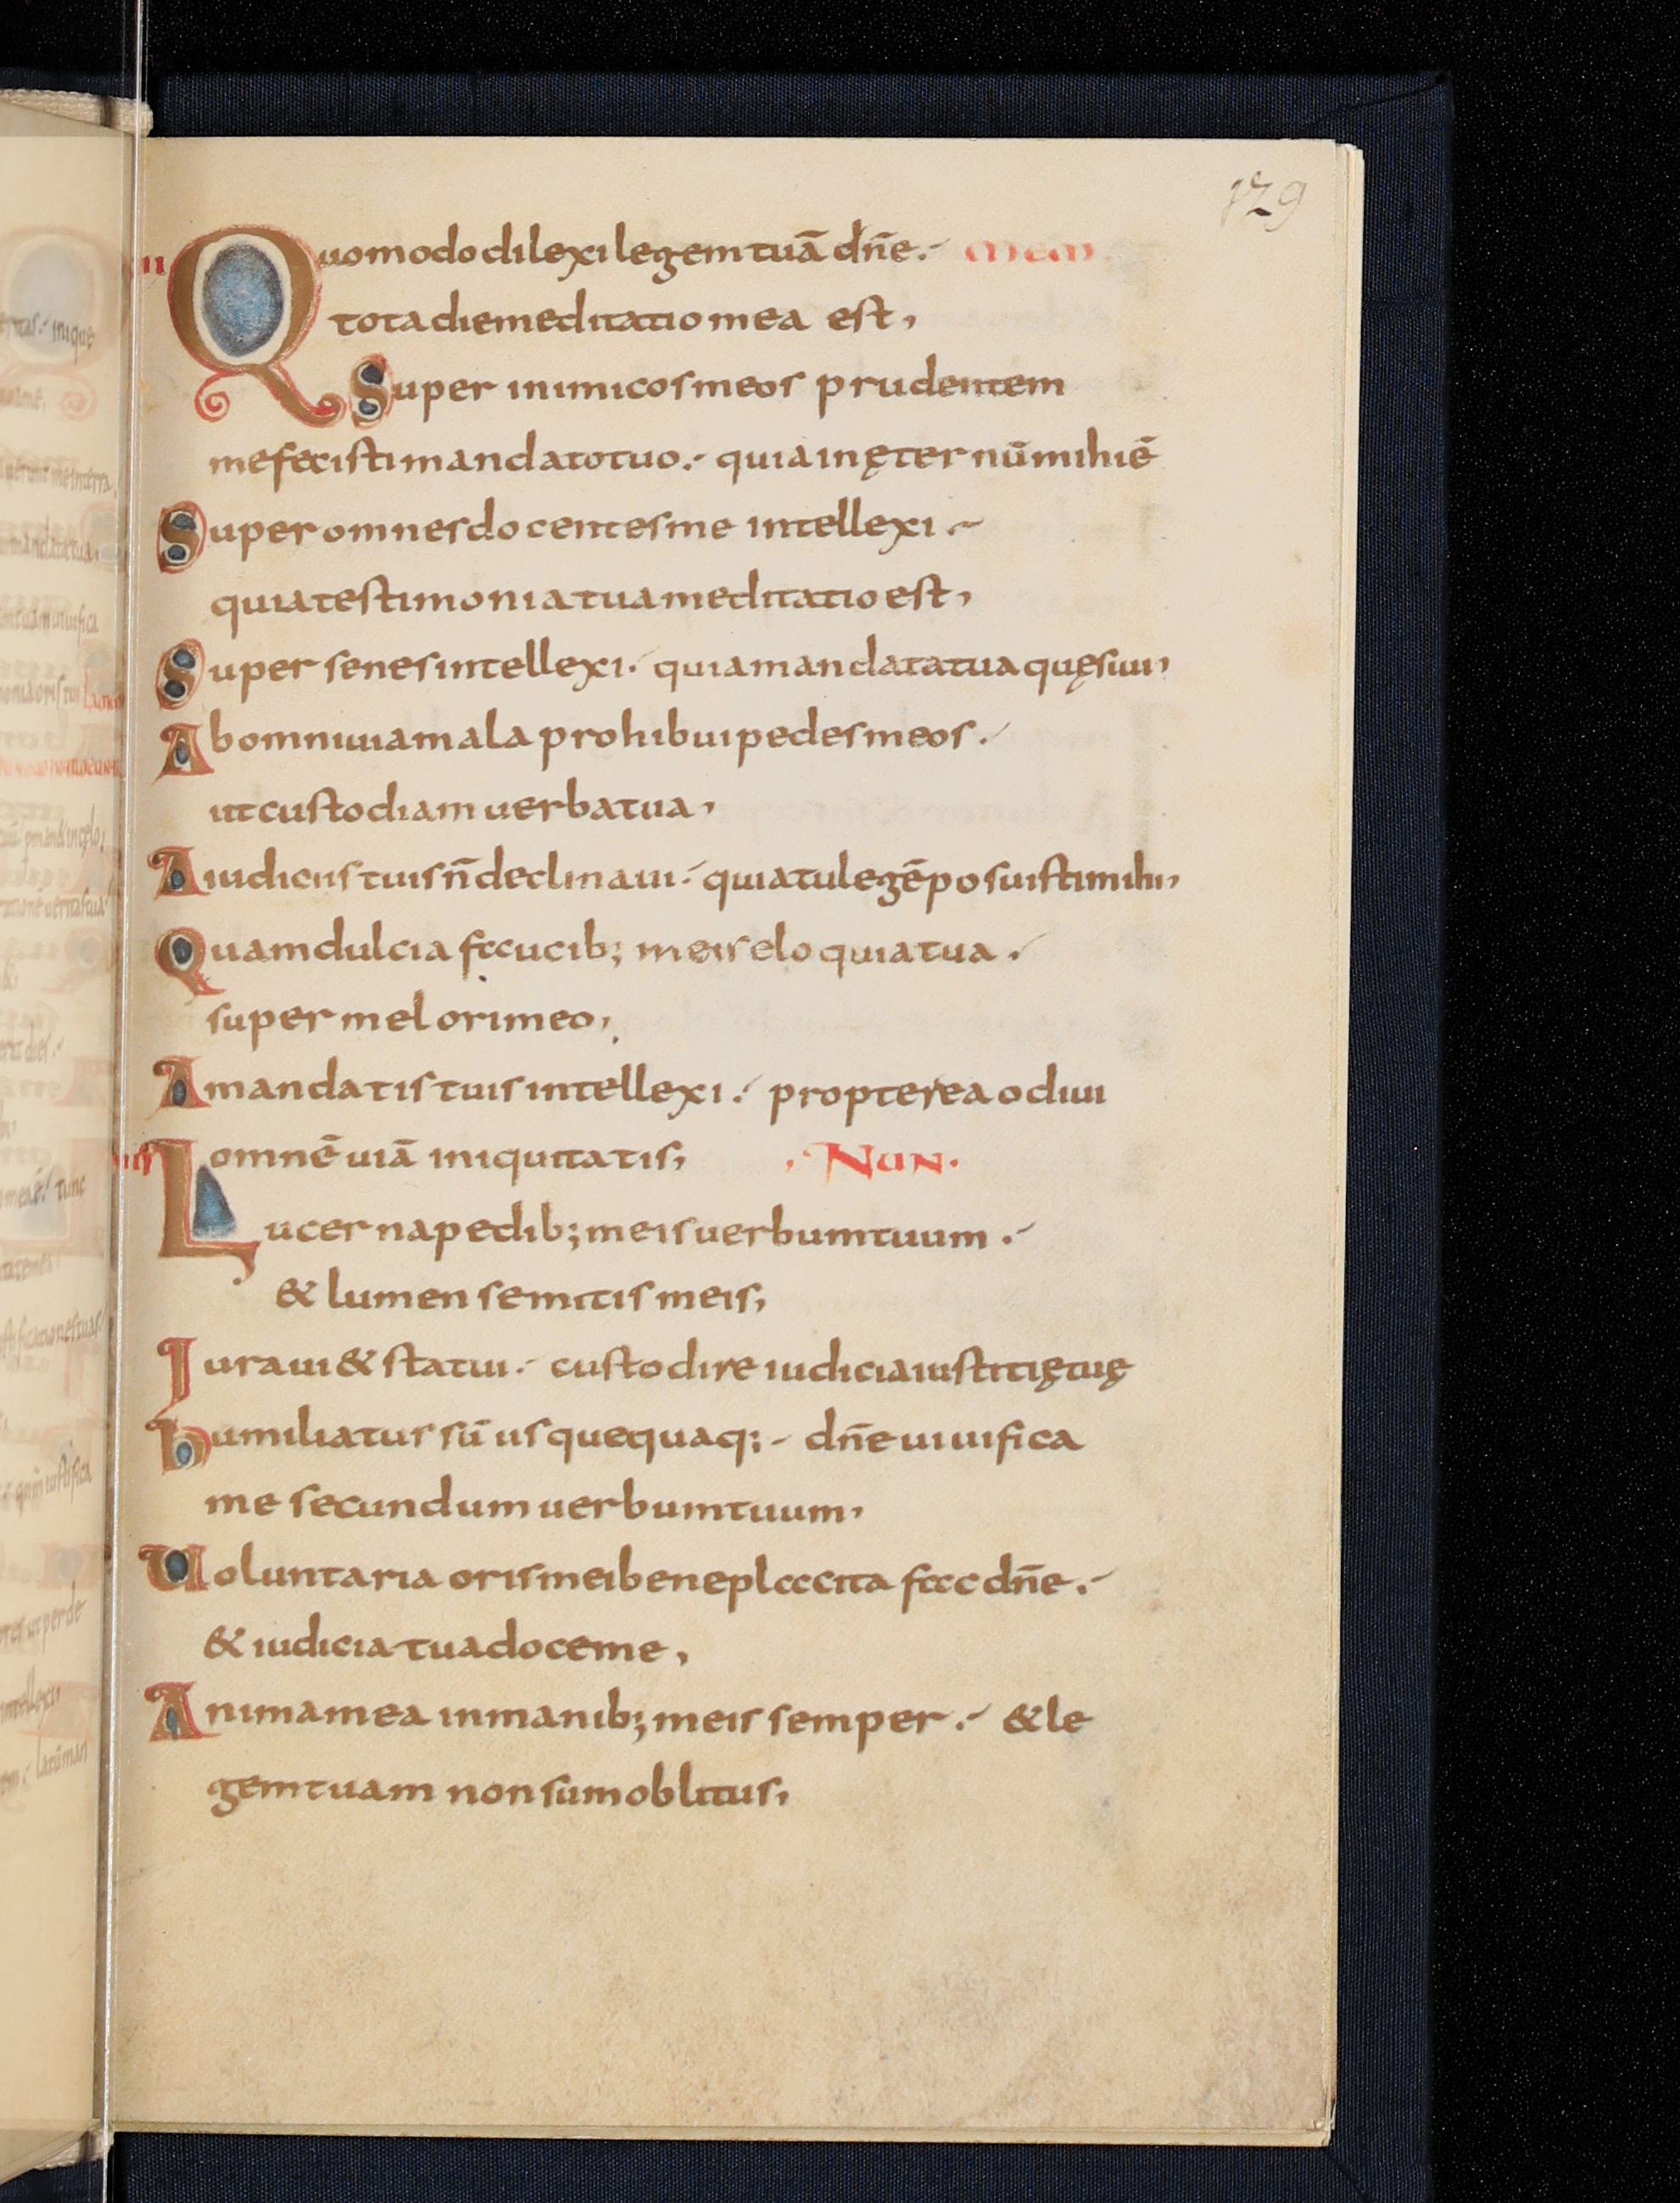 129
Quomodo dilexi legem tuā dn̄e. Mem
tota die meditatio mea est,
Super inimicos meos prudentem
me fecisti mandato tuo. quia in ęternū mihi ē
Super omnes docentes me intellexi.
quia testimonia tua meditatio est,
Super senes intellexi. quia mandata tua quęsiui,
Ab omni uia mala prohibui pedes meos.
ut custodiam uerba tua,
A iudiciis tuis n̄ declinaui. quia tu legē posuisti mihi,
Quam dulcia faucib; meis eloquia tua.
super mel ori meo,
A mandatis tuis intellexi. propterea odiui
omnē uiā iniquitatis, Nun.
Lucerna pedib; meis uerbum tuum.
& lumen semitis meis,
Iuraui & statui. custodire iudicia iustitię tuę
humiliatus sū usquequaq; dn̄e uiuifica
me secundum uerbum tuum,
Uoluntaria oris mei beneplacita fac dn̄e.
& iudicia tua doce me,
Anima mea in manib; meis semper. & le
gem tuam non sum oblitus,